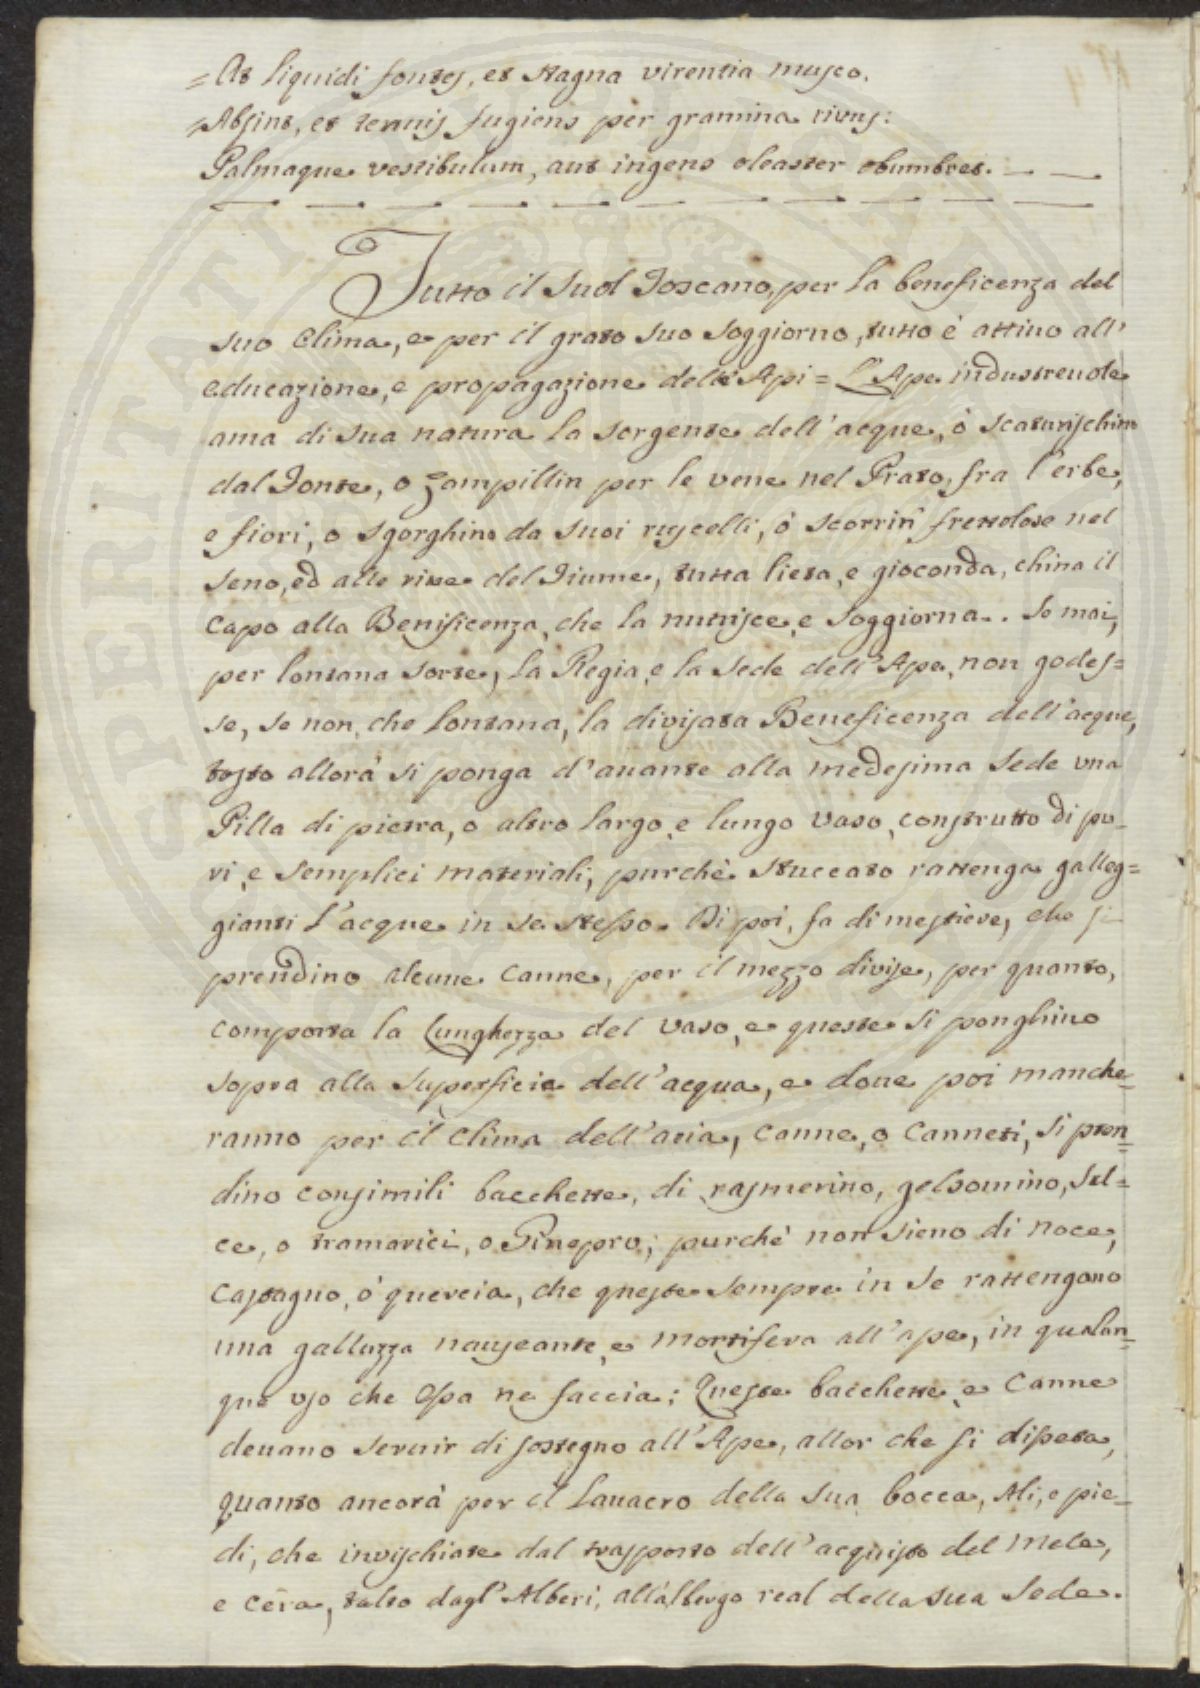 =At liquidi fontes, et stagna virentia musco.
=Absint, et tenuis fugiens per gramina rivus:
Palmaque vestibulum, aut ingens oleaster obumbret.
Tutto il Suol Toscano, per la beneficenza del
suo Clima, e per il grato suo Soggiorno, tutto è attivo all'
educazione, e propagazione dell'Api = L'Ape industrevole
ama di sua natura la sorgente dell'acque, ò scaturischino
dal Fonte, o zampillin per le vene nel Prato, fra l'erbe,
e fiori, o sgorghino da suoi ruscelli, ò scorrin frettolose nel
seno, ed alle rive del Fiume, tutta lieta, e gioconda, china il
Capo alla Benificenza, che la nutrisce, e Soggiorna. Se mai,
per lontana sorte, la Regia, e la Sede dell'Ape, non godes=
se, se non che lontana, la divisata Beneficenza dell'acque,
tosto allorà si ponga d'avante alla medesima Sede una
Pilla di pietra, o altro largo, e lungo Vaso, construtto di pu-
ri, e semplici materiali, purchè stuccato rattenga galleg=
gianti l'acque in se stesso. Di poi, fa di mestiere, che si
prendino alcune Canne, per il mezzo divise, per quanto,
comporta la Lunghezza del vaso, e queste si ponghino
sopra alla superficie dell'acqua, e dove poi manche-
ranno per il Clima dell'aria, Canne, o Canneti, si pren=
dino consimili bacchette, di rasmerino, gelsomino, Sal=
ce, o tramarici, o Ginepro; purchè non sieno di noce,
Castagno, ò quercia, che queste sempre in se rattengono
una galluzza nauseante, e mortifera all'ape, in qualun=
que uso che Essa ne faccia; Queste bacchette, e Canne
devano servir di sostegno all'Ape, allor che si disseta,
quanto ancorà per il Lavacro della sua bocca, Ali, e pie=
di, che invischiate dal trasporto dell'acquisto del Mele,
e cera, tolto dagl'Alberi, all'albergo real della sua Sede.